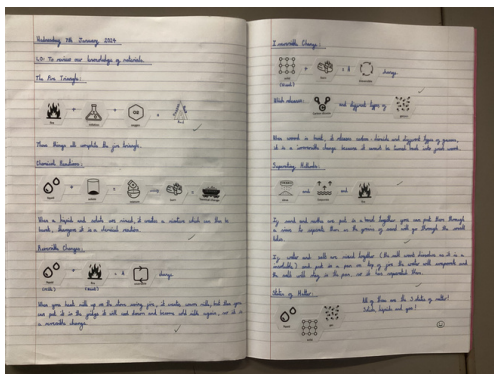 Wednesday 17th January 2024
LO: To review our knowledge of materials.
The Fire Triangle:
fire
oxygen
These things all complete the fire triangle.
Chemical Reactions:
liquid
When a liquid and solids are mixed, it makes a mixture which can be
burnt, therefore it is a chemical reaction.
Reversible Changes:
liquid + fire = a change
(milk)
When you heat milk up on the stove using pan, it creates warm milk, but then you
can put it in the fridge it will cool down and become cold milk again, so it is
a reversible change.
Irreversible Change:
solid + = a change
(wood)
Which releases: and different types of
When wood is heat, it releases carbon dioxide and different types of gasses,
it is a irreversible change because it cannot be turned back into fresh wood.
Separating Methods:
and
If sand and water are put in a bowl together you can put them through
a sieve to separate them as the grains of sand will go through the small
holes.
If water and salt are mixed together (the salt would dissolve as it is a
) and put in a pan on top of fire the water will evaporate and
the salt will stay in the pan, so it has separated them.
States of Matter:
liquid
solid
gas
All of these are the 3 states of matter!
Solid, liquids and gas!